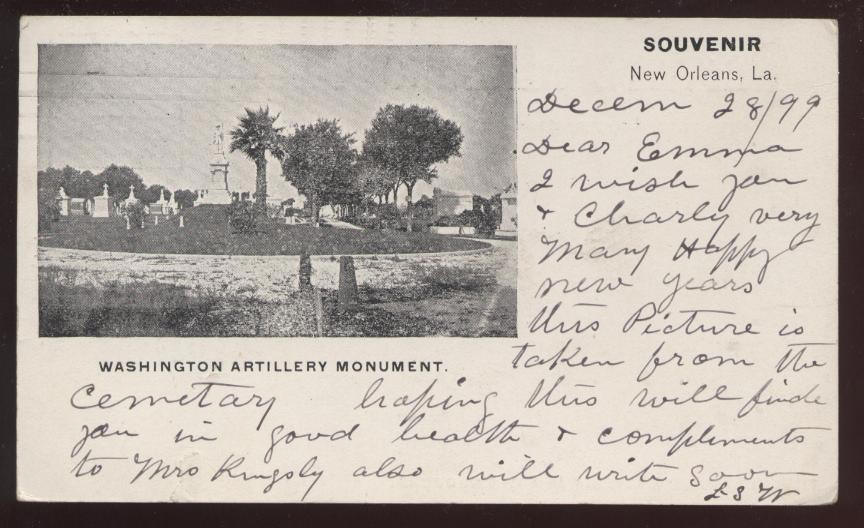 SOUVENIR
New Orleans, La.
Decem 28/99
Dear Emma
I wish you
& Charly very
Many Happy
new years
this Picture is
taken from the
WASHINGTON ARTILLERY MONUMENT.
Cemetary hoping this will finde
you in good health & compliments
to Mrs Kingsly also will write soon